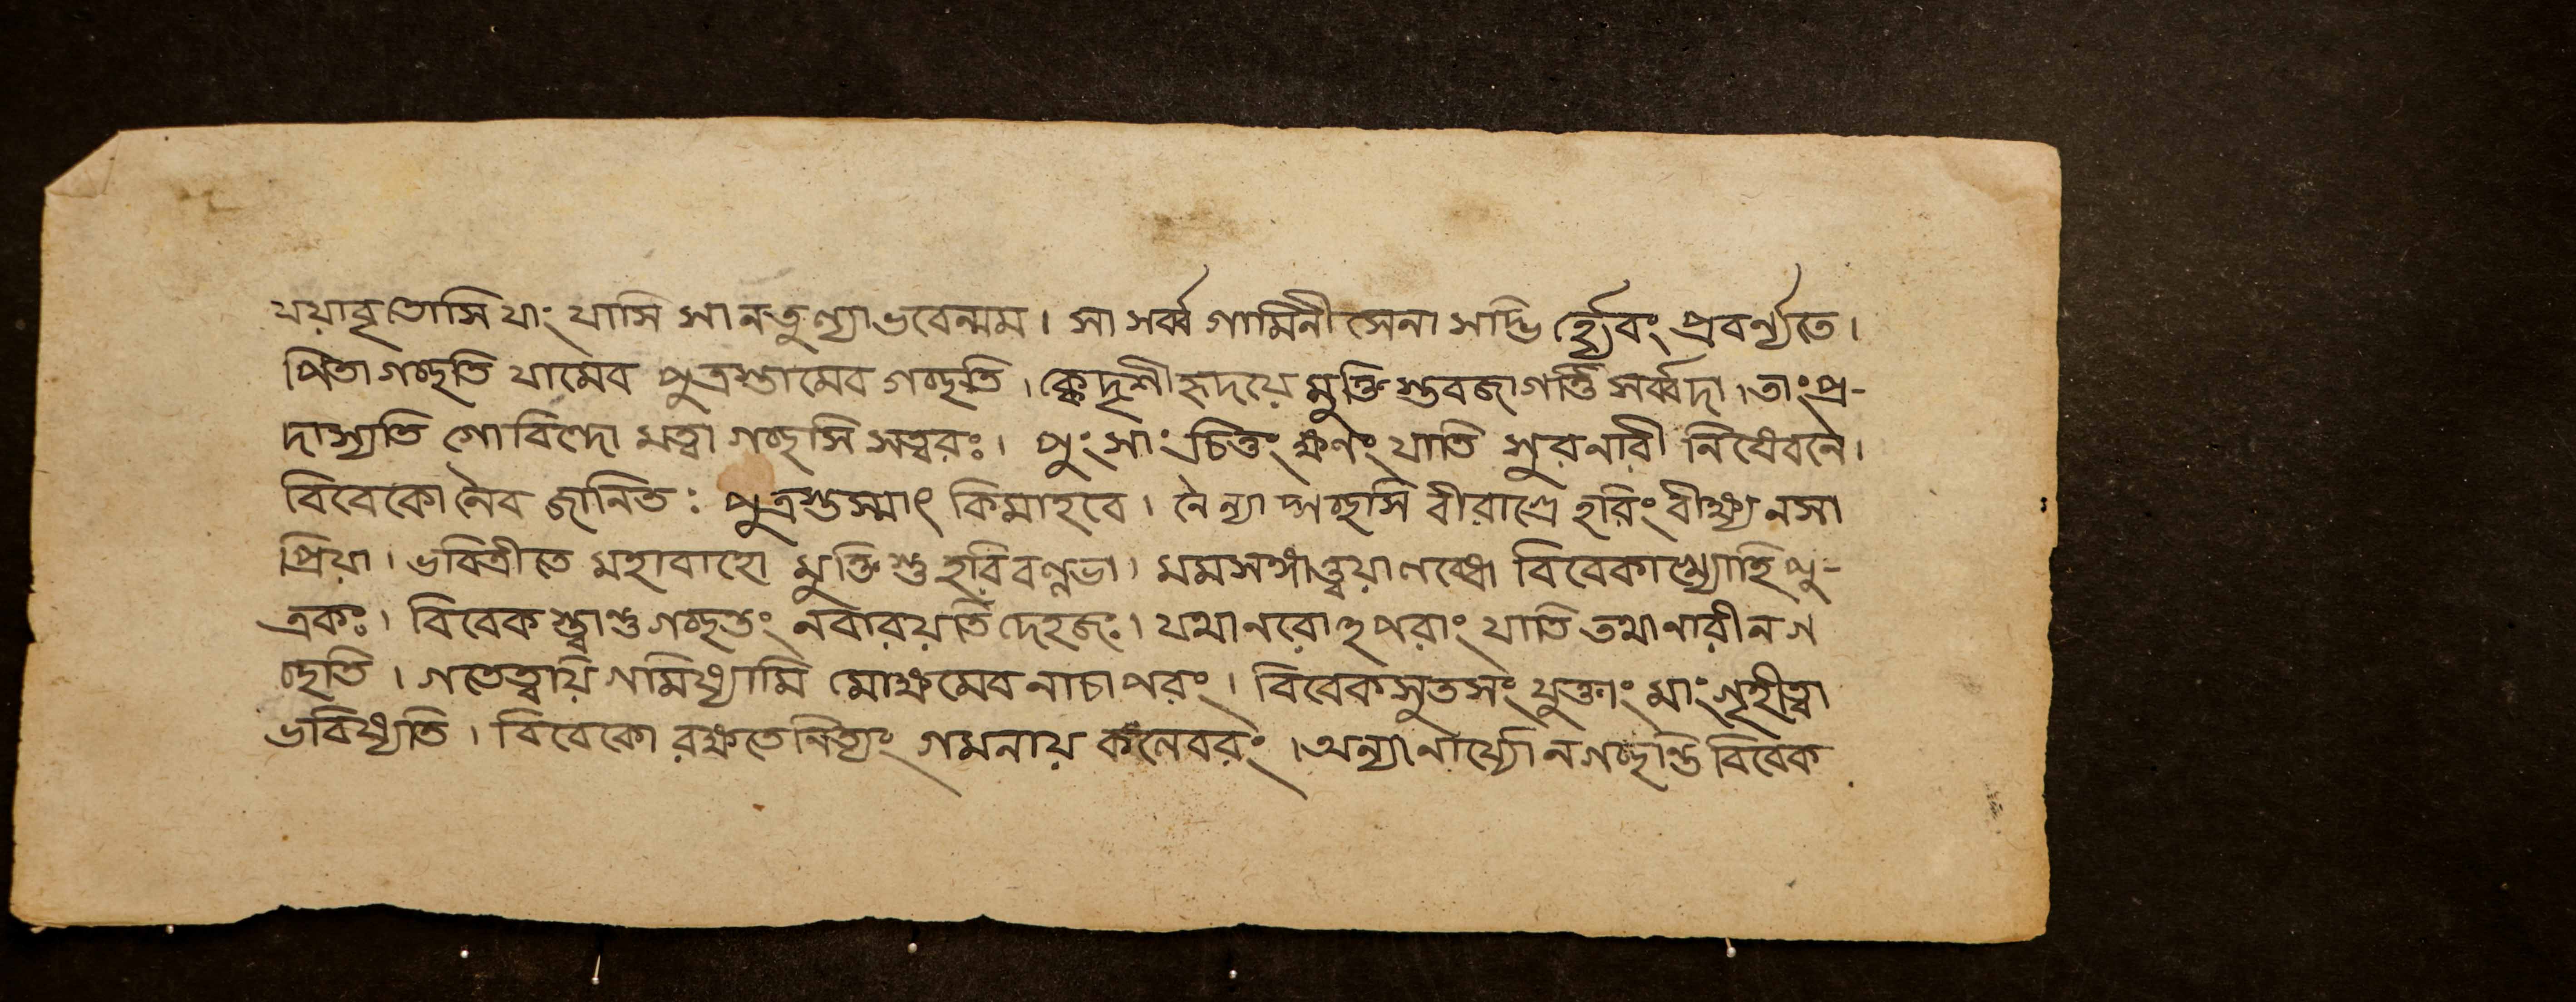 যয়াবৃতোসি যাং যাসি সা ন তুল্যা ভবেন্মম। সা সর্ব্বগামিনী সেনা সদ্ভির্হ্যেবং প্রবর্ণ্যতে।
পিতা গচ্ছতি যামেব পুত্রস্তামেব গচ্ছতি। ক্কেদৃশী হৃদয়ে মুক্তিস্তব জাগর্ত্তি সর্ব্বদা। তাং প্র-
দাস্যতি গোবিন্দো মত্বা গচ্ছসি সত্বরঃ। পুংসাং চিত্তং ক্ষণং যাতি সুরনারী নিষেবনে।
বিবেকো নৈব জানিতঃ পুত্রস্তস্মাৎ কিমাহবে। নৈন্যা গচ্ছসি বীরাগ্রে হরিং বীক্ষ্য ন সা
প্রিয়া। ভবিত্রী তে মহাবাহো মুক্তিস্তু হরিবল্লভা। মমসঙ্গাত্ত্বয়া লব্ধো বিবেকাখ্যো হি পু-
ত্রকঃ। বিবেকস্ত্বাশু গচ্ছন্তং নবারয়তি দেহজঃ। যথা নরোহপরাং যাতি তথা নারী ন গ
চ্ছতি। গতে ত্বয়ি গমিষ্যামি মোক্ষমেব নাচাপরং। বিবেকসুতসংযুক্তাং মাং গৃহীত্বা
ভবিষ্যতি। বিবেকো রক্ষতে নিত্যং গমনায় কলেবরং। অন্যা নার্য্যো ন গচ্ছন্তি বিবেক